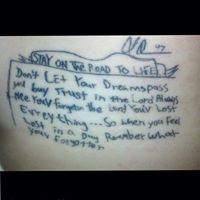 STAY ON THE ROAD TO LIFE
Don't LET Your Dreams pass
you buy Trust in the Lord Always
Never Forget the Lord You'v Lost
Everything... So when you feel
Lost in a Day Remember what
your forgotten